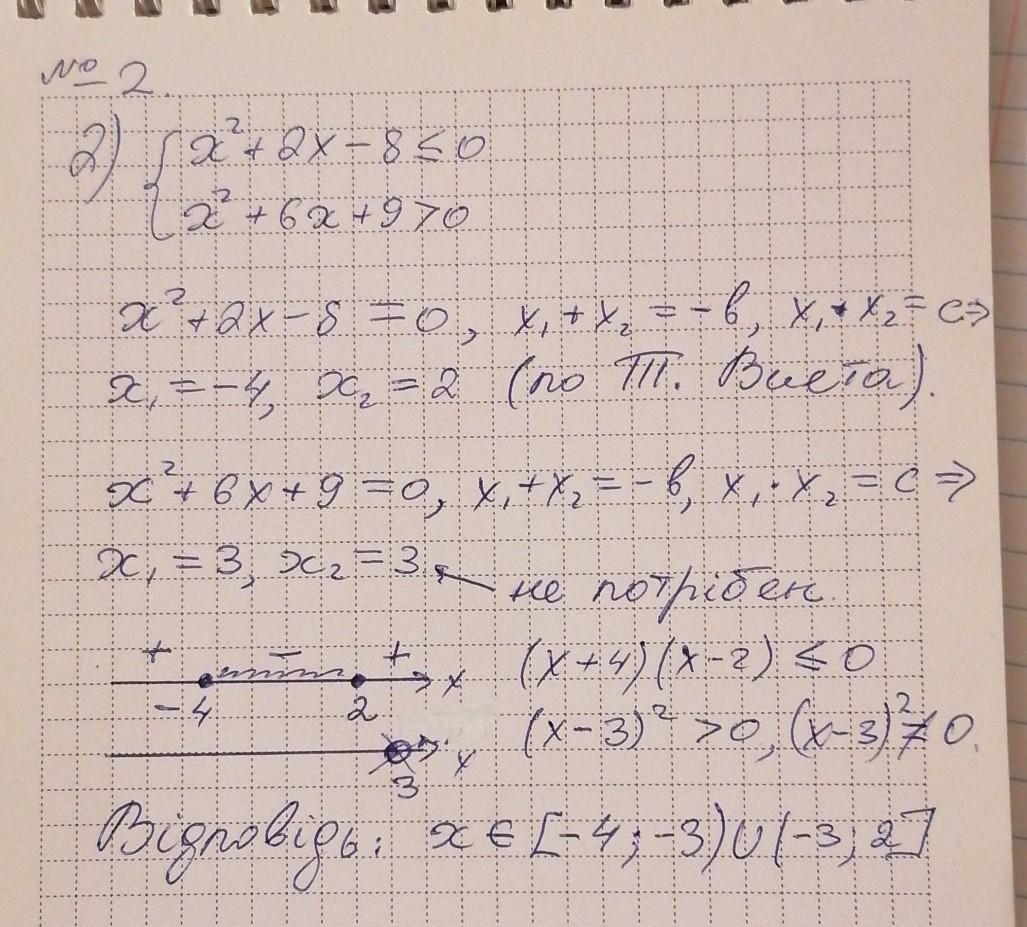 № 2.
2) { x² + 2x - 8 ≤ 0
x² + 6x + 9 > 0
x² + 2x - 8 = 0, x₁ + x₂ = -в, x₁ · x₂ = c ⇒
x₁ = -4, x₂ = 2 (по Т. Виета).
x² + 6x + 9 = 0, x₁ + x₂ = -в, x₁ · x₂ = c ⇒
x₁ = 3, x₂ = 3, не потрібен.
+ - + x (x+4)(x-2) ≤ 0
-4 2
x (x-3)² > 0, (x-3)² ≠ 0.
3
Відповідь: x ∈ [-4; -3) ∪ (-3; 2]